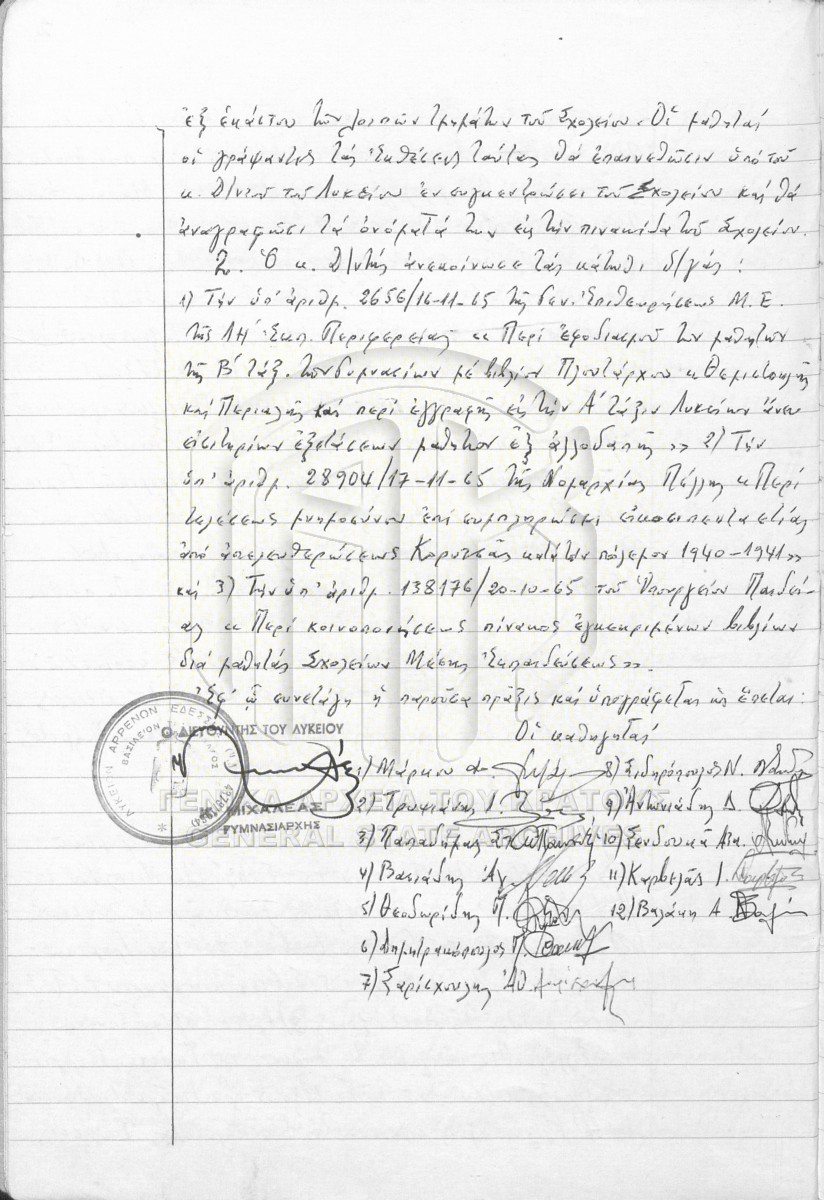 ἐξ ἑκάστου τῶν λοιπῶν τμημάτων τοῦ Σχολείου. Οἱ μαθηταί
οἱ γράψαντες τάς ἐκθέσεις ταύτας θά ἐπαινεθῶσιν ὑπό τοῦ
κ. Δ/ντοῦ τοῦ Λυκείου ἐν συγκεντρώσει τοῦ Σχολείου καί θά
ἀναγραφῶσι τά ὀνόματά των εἰς τήν πινακίδα τοῦ Σχολείου.
2. Ὁ κ. Δ/ντής ἀνεκοίνωσε τάς κάτωθι δ/γάς :
1) Τήν ὑπ' ἀριθμ. 2656/16-11-65 τῆς Γεν. Ἐπιθεωρήσεως Μ. Ε.
τῆς ΛΗ΄ Ἐκπ. Περιφερείας « Περί ἐφοδιασμοῦ των μαθητῶν
τῆς Β΄ τάξ. τῶν Γυμνασίων μέ βιβλίον Πλουτάρχου « Θεμιστοκλῆς
καί Περικλῆς καί περί ἐγγραφῆς εἰς τήν Α΄ τάξιν Λυκείων ἄνευ
εἰσιτηρίων ἐξετάσεων μαθητῶν ἐξ ἀλλοδαπῆς » 2) Τήν
ὑπ' ἀριθμ. 28904/17-11-65 τῆς Νομαρχίας Πέλλης « Περί
τελέσεως μνημοσύνου ἐπί συμπληρώσει εἰκοσιπενταετίας
ἀπό ἀπελευθερώσεως Κορυτσᾶς κατά τον πόλεμον 1940-1941 »
καί 3) Τήν ὑπ' ἀριθμ. 138176/20-10-65 τοῦ Ὑπουργείου Παιδεί-
ας « Περί κοινοποιήσεως πίνακος ἐγκεκριμένων βιβλίων
διά μαθητάς Σχολείων Μέσης Ἐκπαιδεύσεως ».
Ἐφ' ᾧ συνετάγη ἡ παροῦσα πρᾶξις καί ὑπογράφεται ὡς ἕπεται:
Οἱ καθηγηταί
Ο ΔΙΕΥΘΥΝΤΗΣ ΤΟΥ ΛΥΚΕΙΟΥ
ΛΥΚΕΙΟΝ ΑΡΡΕΝΩΝ ΕΔΕΣΣΗΣ
ΒΑΣΙΛΕΙΟΝ
ΜΙΧΑΛΕΑΣ
ΓΥΜΝΑΣΙΑΡΧΗΣ
1) Μάρκου
2) Τρυφιάνης
3) Παπαδήμας Στ.
4) Βασιάδης Ἀγ.
5) Θεοδωρίδης Π.
6) Δημητρακόπουλος Π.
7) Σαρίσχουλης Ἀθ.
8) Σιδηρόπουλος Ν.
9) Ἀντωνιάδης Δ.
10) Ξενδουκᾶ Αικ.
11) Καρβελᾶς Ι.
12) Βαλάκη Α.
ΓΕΝΙΚΑ ΑΡΧΕΙΑ ΤΟΥ ΚΡΑΤΟΥΣ
GENERAL STATE ARCHIVES